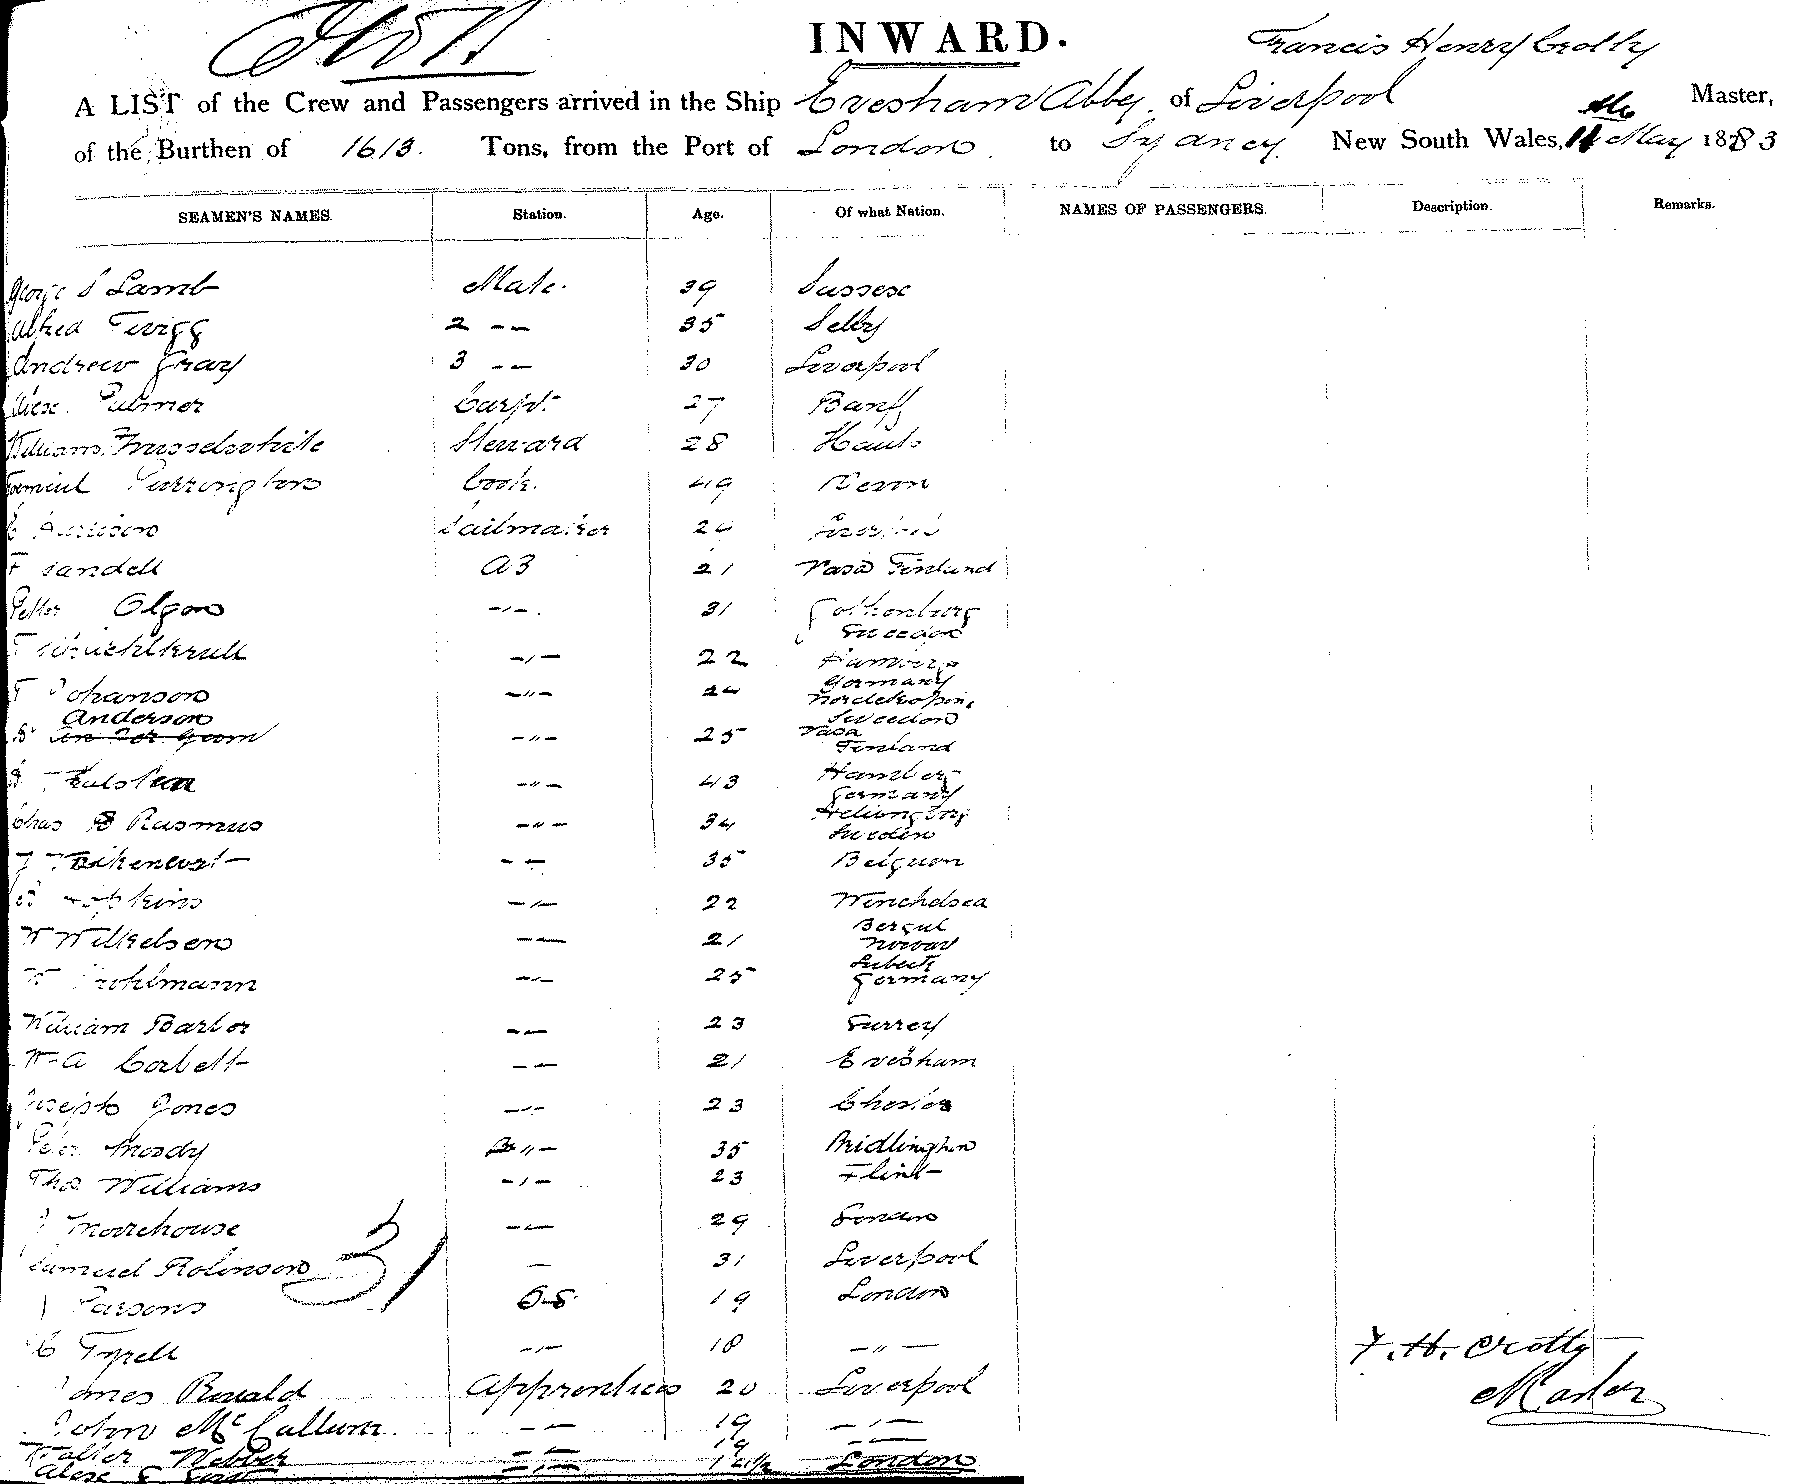 INWARD.
Francis Henry Crotty
A LIST of the Crew and Passengers arrived in the Ship Evesham Abbey of Liverpool Master,
of the Burthen of 1613. Tons, from the Port of London to Sydney New South Wales, 11 May 1883
SEAMEN'S NAMES. Station. Age. Of what Nation. NAMES OF PASSENGERS. Description. Remarks.
George S Lamb Mate. 39 Sussex
Alfred Twigg 2 -- 35 Selby
Andrew Gray 3 -- 30 Liverpool
Alex. Palmer Carpt. 27 Banff
William Steward 28 Hants
Purrington Cook. 49 Devon
Sailmaker
AB 21 Vasa Finland
Peter Olgon -"-. 31 Gothenburg
Sweedon
-"- 22 Hamberg
Germany
Johanson -"- 24
Sweedon
Anderson
-"- 25 Vasa
Finland
-"- 43 Hamberg
Germany
Chas Rasmus -"- 34
Sweden
-- 35 Belguon
Hopkins -"- 22 Winchelsea
W Wilkelsen -- 21
Norway
-- 25 Lubeck
Germany
William Barber -- 23 Surrey
W-A Corbett -- 21 Evesham
Joseph Jones -- 23
Peter Moody -"- 35 Bridlington
Thos. Williams -"- 23 Flint
Morehouse -- 29 London
Samuel Robinson - 31 Liverpool
31
Parsons OS 19 London
C Tyrell -"- 18 -"-
F. H. Crotty
Master
James Ronald Apprentices 20 Liverpool
John McCallum -- 19 -"-
Walter Webber -- 19 --
Alex -"- London